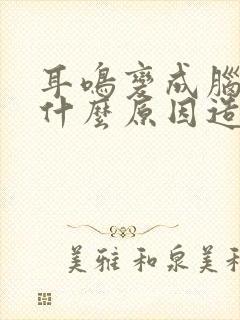 耳鳴變成腦
什麼原因造
美雅和泉美和